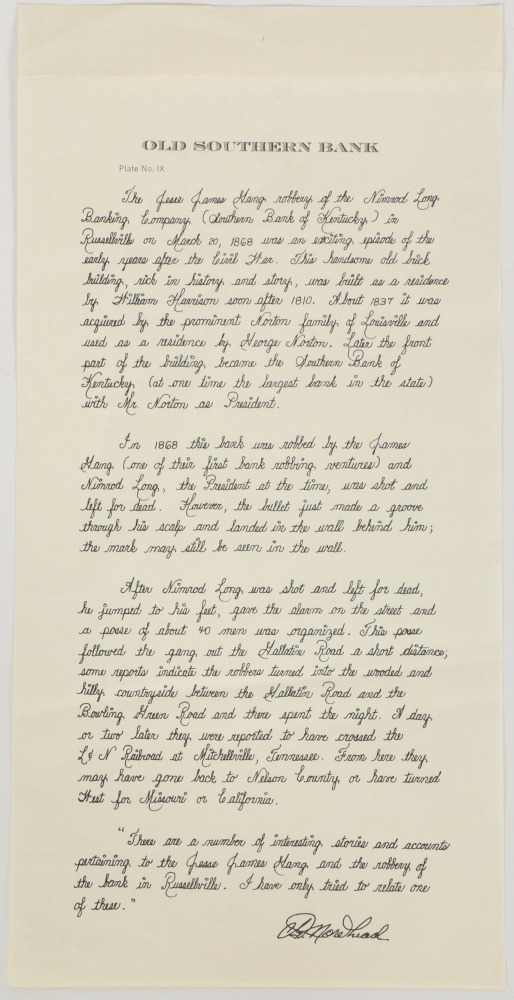 OLD SOUTHERN BANK
Plate No. IX
The Jesse James Gang robbery of the Nimrod Long
Banking Company (Southern Bank of Kentucky) in
Russellville on March 20, 1868 was an exciting episode of the
early years after the Civil War. This handsome old brick
building, rich in history and story, was built as a residence
by William Harrison soon after 1810. About 1837 it was
acquired by the prominent Norton family of Louisville and
used as a residence by George Norton. Later the front
part of the building became the Southern Bank of
Kentucky (at one time the largest bank in the state)
with Mr. Norton as President.
In 1868 this bank was robbed by the James
Gang (one of their first bank robbing ventures) and
Nimrod Long, the President at the time, was shot and
left for dead. However, the bullet just made a groove
through his scalp and landed in the wall behind him;
the mark may still be seen in the wall.
After Nimrod Long was shot and left for dead,
he jumped to his feet, gave the alarm on the street and
a posse of about 40 men was organized. This posse
followed the gang out the Gallatin Road a short distance;
some reports indicate the robbers turned into the wooded and
hilly countryside between the Gallatin Road and the
Bowling Green Road and there spent the night. A day
or two later they were reported to have crossed the
L & N Railroad at Mitchellville, Tennessee. From here they
may have gone back to Nelson County or have turned
West for Missouri or California.
"There are a number of interesting stories and accounts
pertaining to the Jesse James Gang and the robbery of
the bank in Russellville. I have only tried to relate one
of these."
Morehead